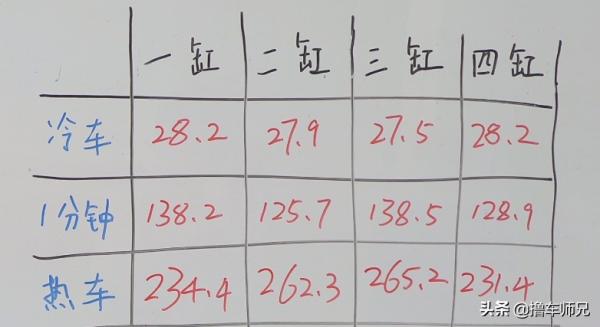 一缸 二缸 三缸 四缸
冷车 28.2 27.9 27.5 28.2
1分钟 138.2 125.7 138.5 128.9
热车 234.4 262.3 265.2 231.4
头条 @撸车师兄